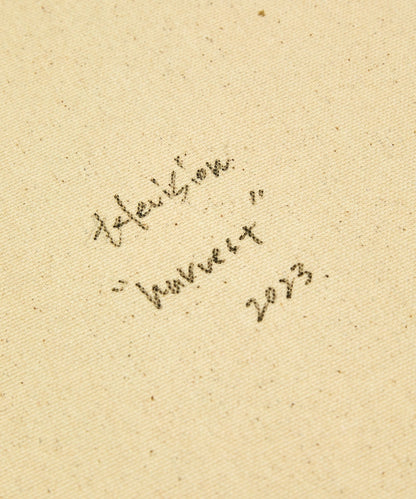 television.
"harvest"
2023.